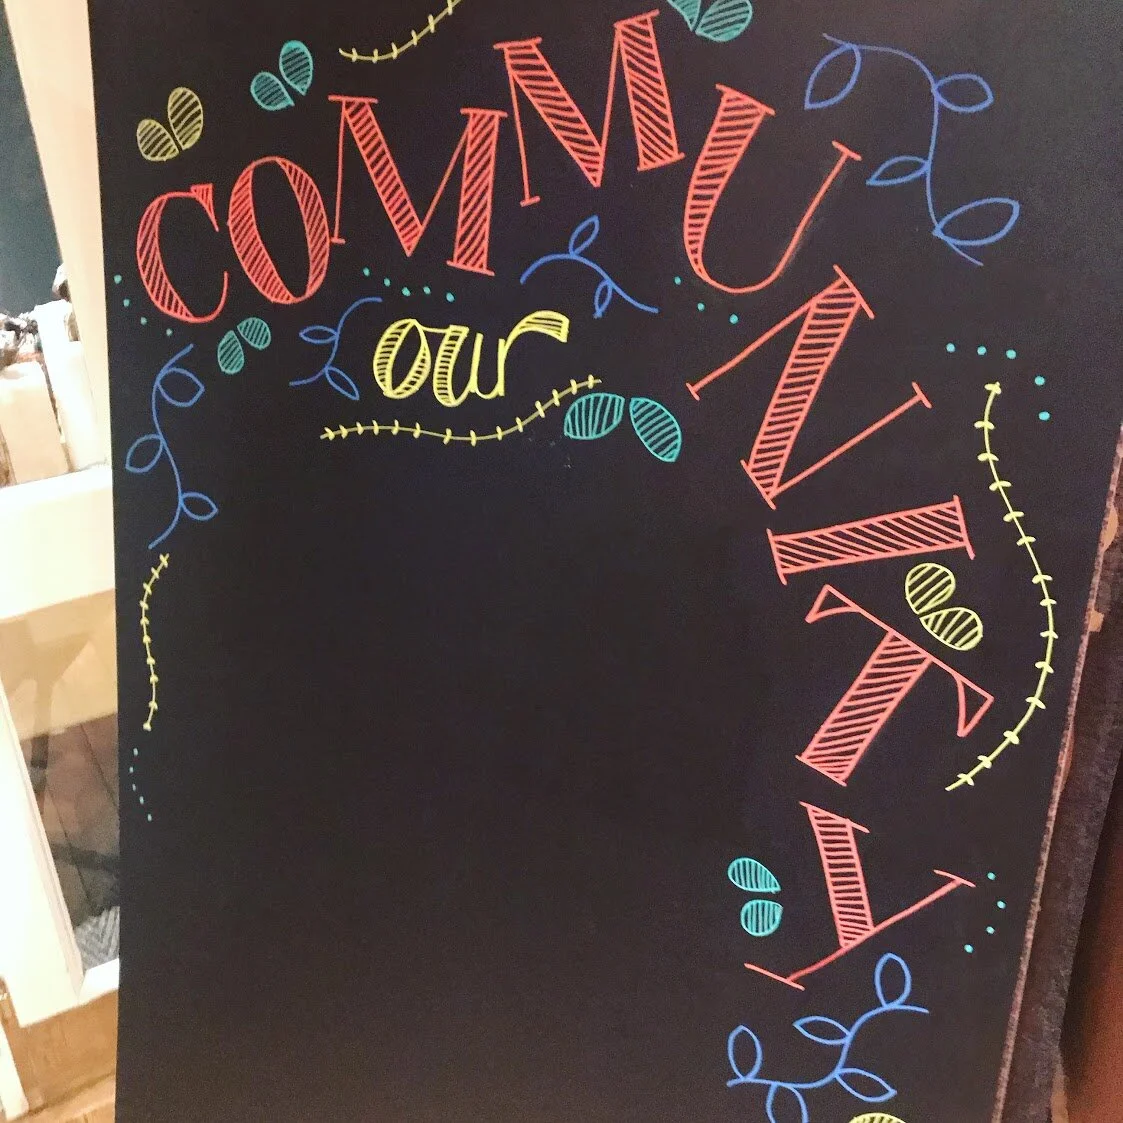 COMMUNITY
our